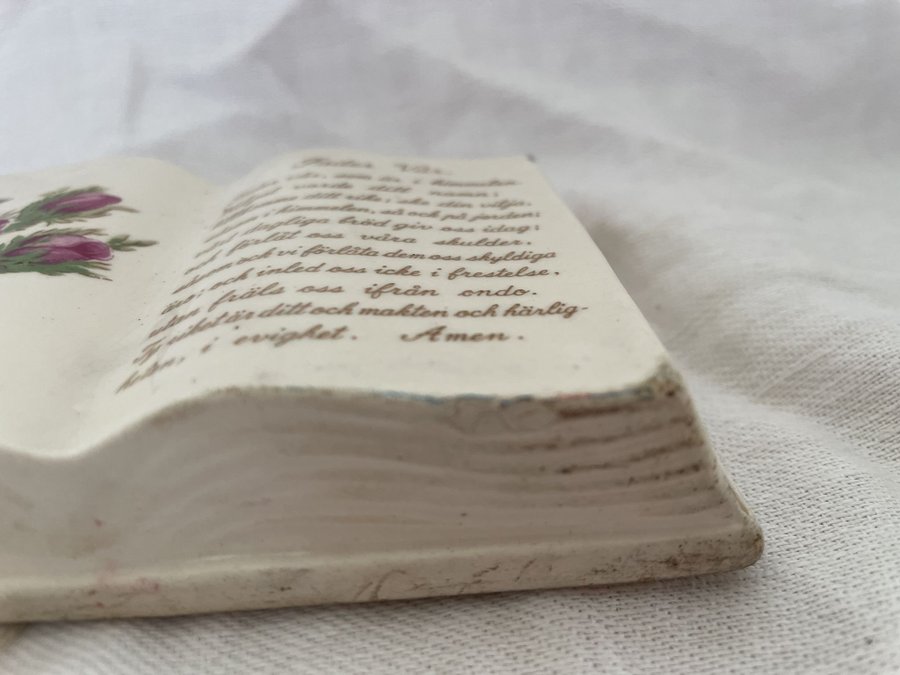 Fader Vår
som är i himmelen.
varde ditt namn;
ditt rike; ske din vilja,
i himmelen, så ock på jorden;
dagliga bröd giv oss idag;
förlåt oss våra skulder,
och vi förlåta dem oss skyldiga
äro; och inled oss icke i frestelse,
utan fräls oss ifrån ondo.
Ty riket är ditt och makten och härlig-
heten, i evighet. Amen.